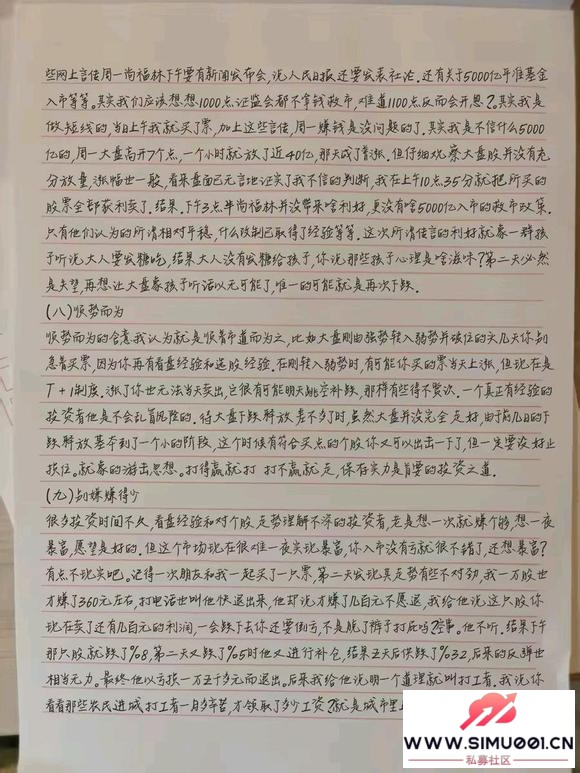 些网上言传周一尚福林下午要有新闻发布会,说人民日报还要发表社论.还有关于5000亿平准基金
入市等等。其实我们应该想想1000点证监会都不拿钱救市,难道1100点反而会开恩?。其实我是
做短线的,当日上午我就买了票,加上这些言传,周一赚钱是没问题的了.其实我是不信什么5000
亿的,周一大盘高开7个点,一个小时就放了近40亿,那天成了普涨.但仔细观察大盘股并没有充
分放量,涨幅也一般,看来盘面已无言地证实了我不信的判断,我在上午10点.35分就把所买的
股票全部获利卖了.结果.下午3点半尚福林并没带来啥利好,更没有啥5000亿入市的救市政策.
只有他们认为的所谓相对平稳,什么改制已取得了经验等等.这次所谓传言的利好就象一群孩
子听说大人要发糖吃,结果大人没有发糖给孩子,你说那些孩子心理是啥滋味?第二天必然
是失望,再想让大盘象孩子听话以无可能了,唯一的可能就是再次下跌.
(八)顺势而为
顺势而为的含意我认为就是顺着市道而为之,比如大盘刚由强势转入弱势并破位的头几天你别
急着买票,因为你再有看盘经验和选股经验.在刚转入弱势时,有可能你买的票当天上涨,但现在是
T+1制度.涨了你也无法当天卖出,它很有可能明天跳空补跌,那样有些得不赏次.一个真正有经验的
投资者他是不会乱冒风险的.待大盘下跌释放差不多了时,虽然大盘并没完全走好,由于前几日的下
跌释放基本到了一个小的阶段,这个时候有符合买点的个股你又可以出击一下了,但一定要设好止
损位。就象的游击思想。打得赢就打 打不赢就走,保存实力是首要的投资之道.
(九)别嫌赚得少
很多投资时间不久,看盘经验和对个股走势理解不深的投资者,老是想一次就赚个够,想一夜
暴富,愿望是好的.但这个市场现在很难一夜实现暴富,你入市没有亏就很不错了,还想暴富?
有点不现实吧。记得一次朋友和我一起买了一只票.第二天发现其走势有些不对劲,我一万股也
才赚了360元左右,打电话也叫他快退出来,他却说才赚了几百元不愿退,我给他说这只股你
现在卖了还有几百元的利润,一会跌下去你还要倒亏,不是脱了裤子打屁吗?空事。他不听.结果下午
那只股就跌了%8,第二天又跌了%5时他又进行补仓,结果五天后供跌了%32,后来的反弹也
相当无力。最终他以亏损一万五千多元而退出。后来我给他说明一个道理就叫打工者。我说你
看看那些农民进成打工者一月多辛苦,才领取了多少工资?就是城市里
WWW.SIMU001.CN
私募社区